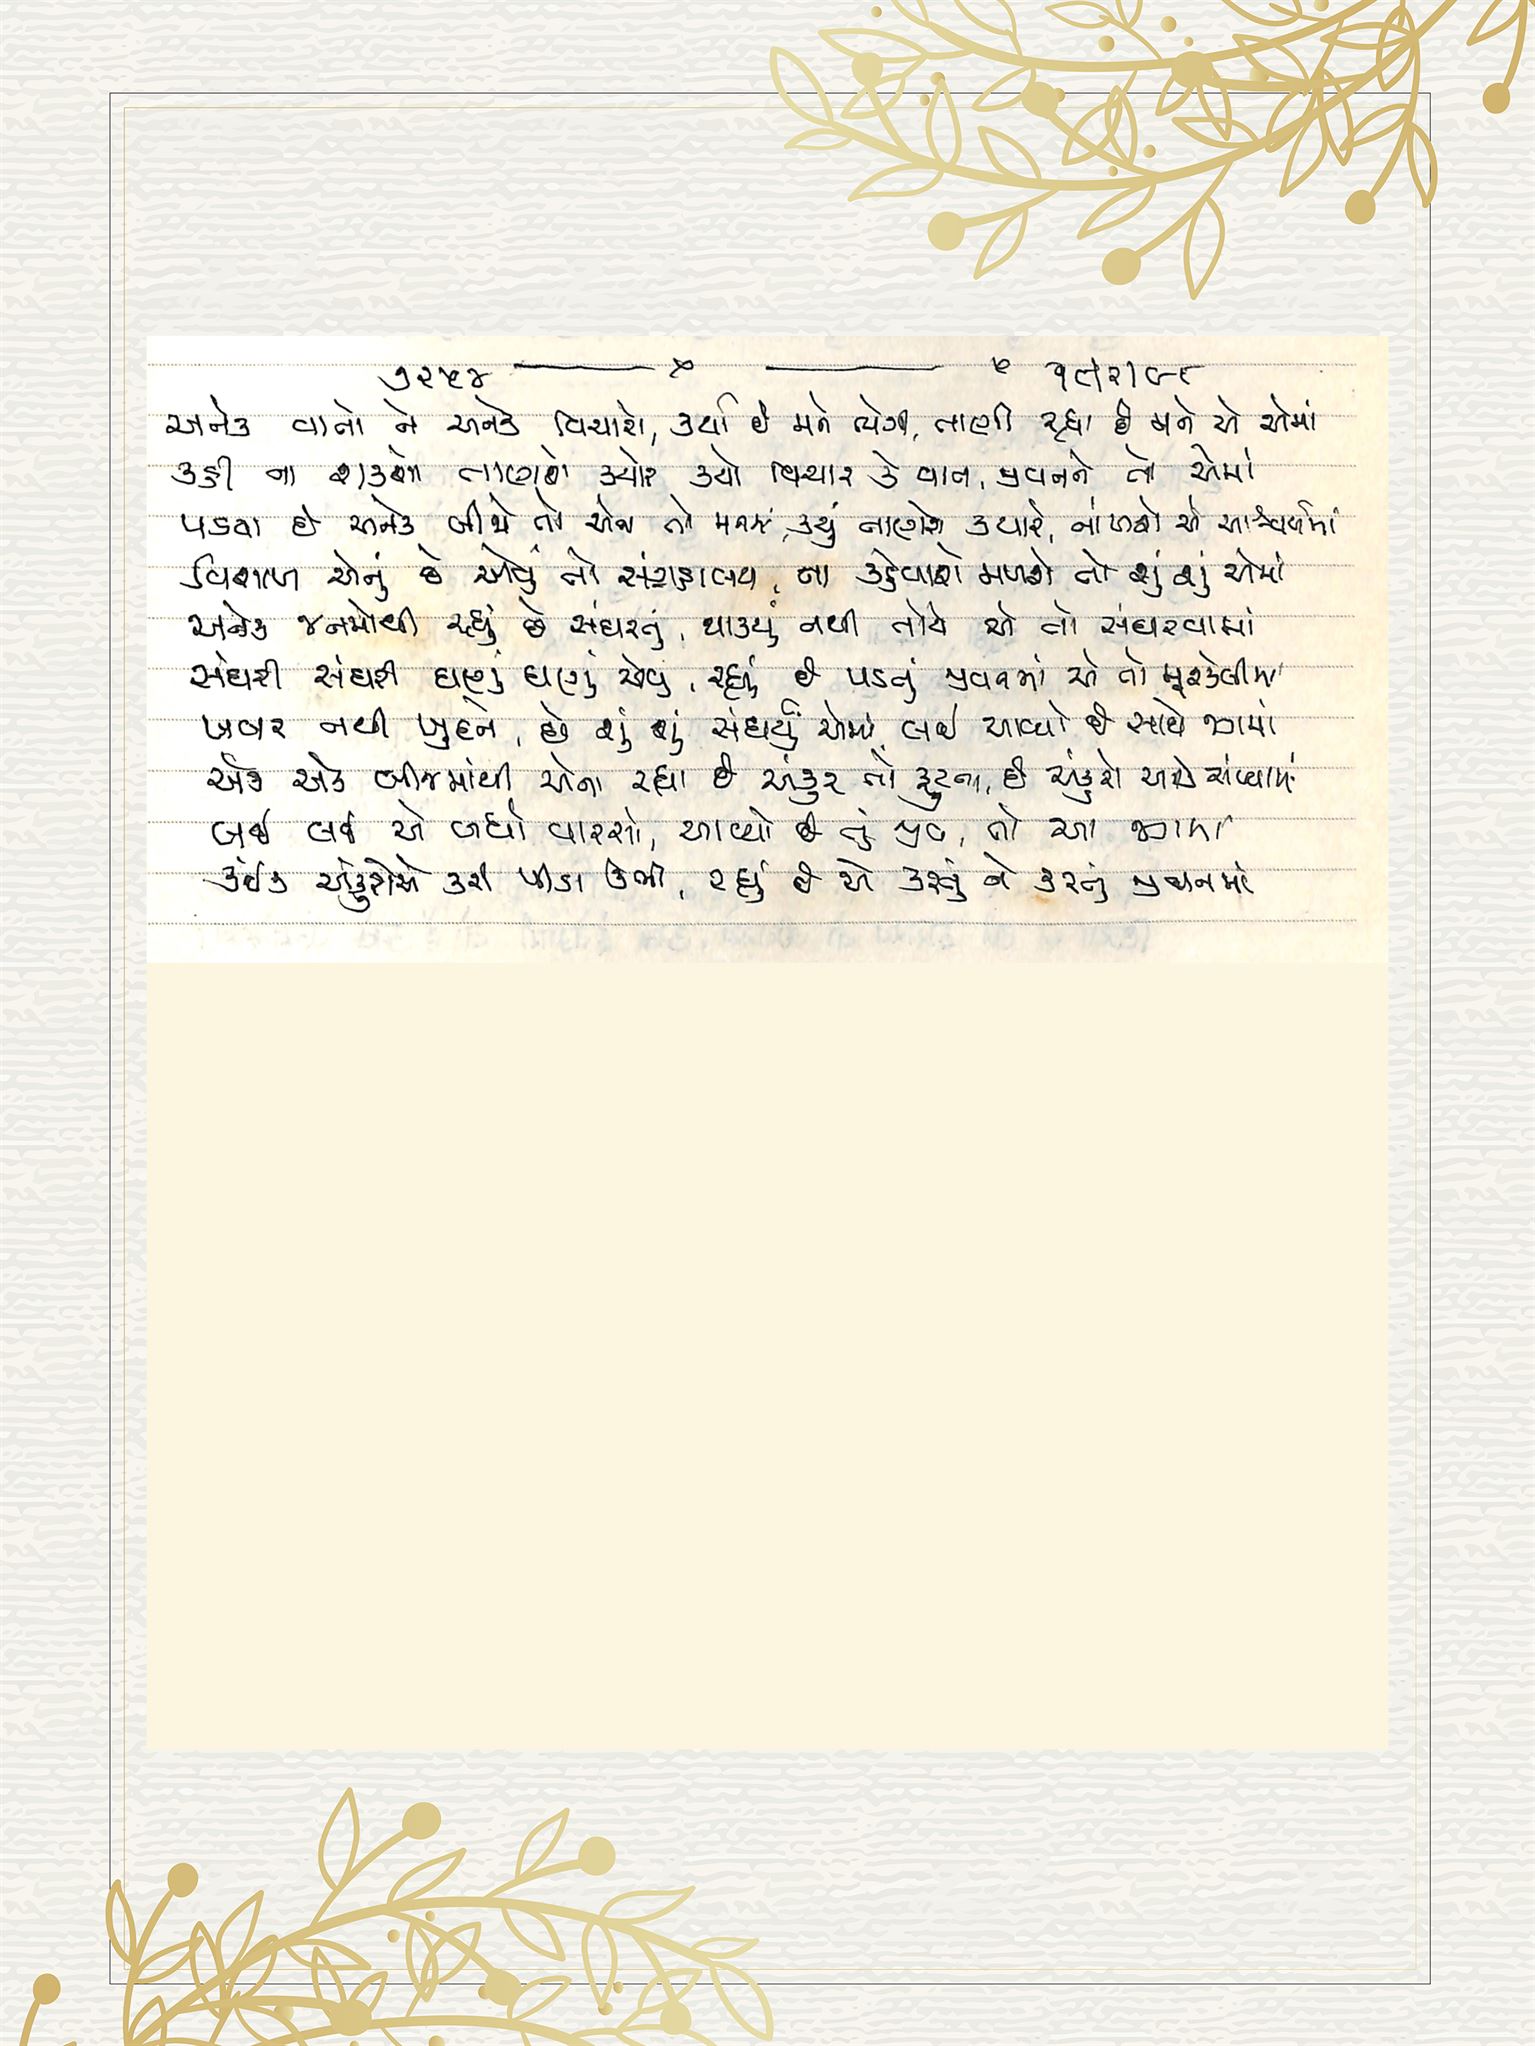 ૭૨૫૪ ૧૯|૨|૯૮
અનેક વાતો ને અનેક વિચારો, કર્યા છે મને ભેગા, તાણી રહ્યા છે મને એ એમાં
કહી ના શકશો તાણશે ક્યારે ક્યો વિચાર કે વાત, જીવનને તો એમાં
પડયા છે અનેક બીજો તો એના તો મનમાં, કયું તાણશે ક્યારે, નાંખશે એ આશ્ચર્યમાં
વિશાળ એનું છે એવું તો સંગ્રહાલય, ના કહેવાશે મળશે તો શું શું એમાં
અનેક જનમોથી રહ્યું છે સંઘરતું, થાક્યું નથી તોયે એ તો સંઘરવામાં
સંઘરી સંઘરી ઘણું ઘણું એવું, રહ્યું છે પડતું જીવનમાં એ તો મુશ્કેલીમાં
ખબર નથી ખુદને, છે શું શું સંઘર્યું એમાં, લઈ આવ્યો છે સાથે જગમાં
એક એક બીજમાંથી એના રહ્યા છે અંકુર તો ફૂટતા, છે અંકુરો અસંખ્યામાં
લઈ લઈ એ બધો વારસો, આવ્યો છે તું જીવ, તો આ જગમાં
કંઈક અંકુરોએ કરી પીડા ઊભી, રહ્યું છે એ કરતું ને કરતું જીવનમાં